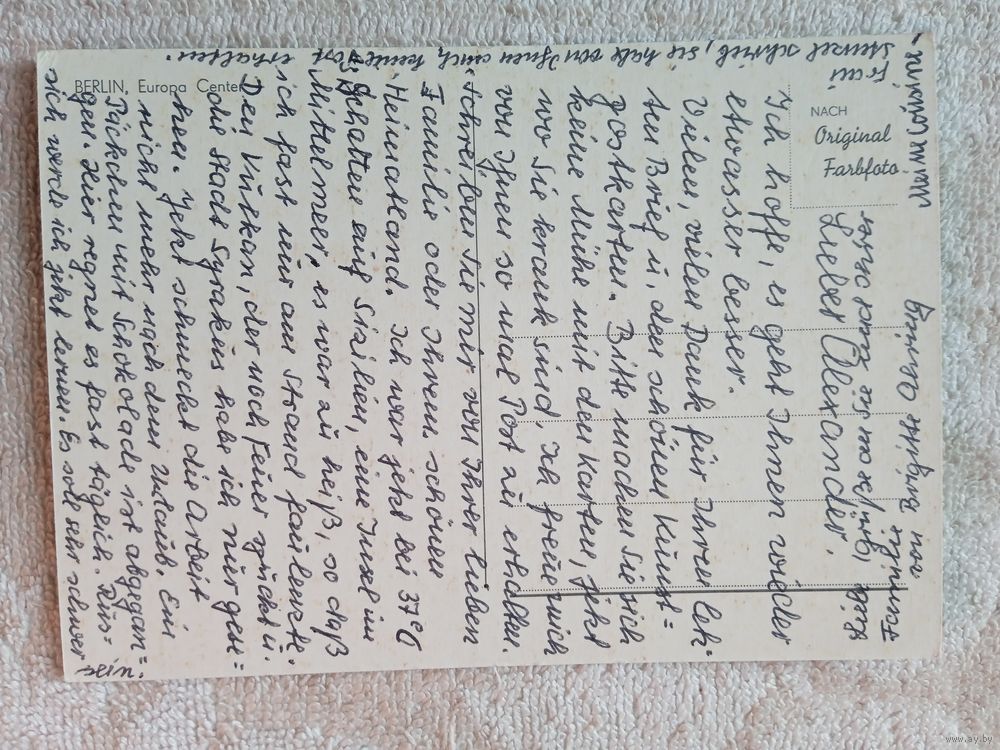 BERLIN, Europa Center
NACH
Original
Farbfoto
Lieber Alexander,
Ich hoffe, es geht Ihnen wieder
etwas besser.
Vielen, vielen Dank für Ihren letz=
ten Brief u. den schönen Kunst=
postkarten. Bitte machen Sie sich
keine Mühe mit den Karten, jetzt
wo Sie krank sind. Ich freue mich
von Ihnen so mal Post zu erhalten.
Schreiben Sie mir von Ihrer lieben
Familie oder Ihrem schönen
Heimatland. Ich war jetzt bei 37°C
Schatten auf Sizilien, eine Insel im
Mittelmeer, es war zu heiß, so daß
ich fast nur am Strand faulenzte.
Den Vulkan, der noch Feuer spuckt u.
die Stadt Syrakus habe ich nur gese=
hen. Jetzt schmeckt die Arbeit
nicht mehr nach dem Urlaub. Ein
Päckchen mit Schokolade ist abgegan=
gen. Hier regnet es fast täglich.
sich werde ich jetzt lernen. Es soll sehr schwer
Frau
schrieb, sie habe von Ihnen auch keine Post
erhalten.
von Brigitte